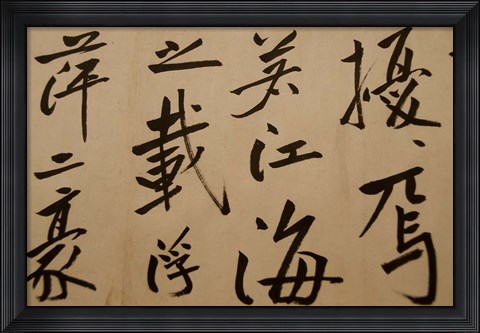 擾〻焉
若江海
之載浮
萍二豪